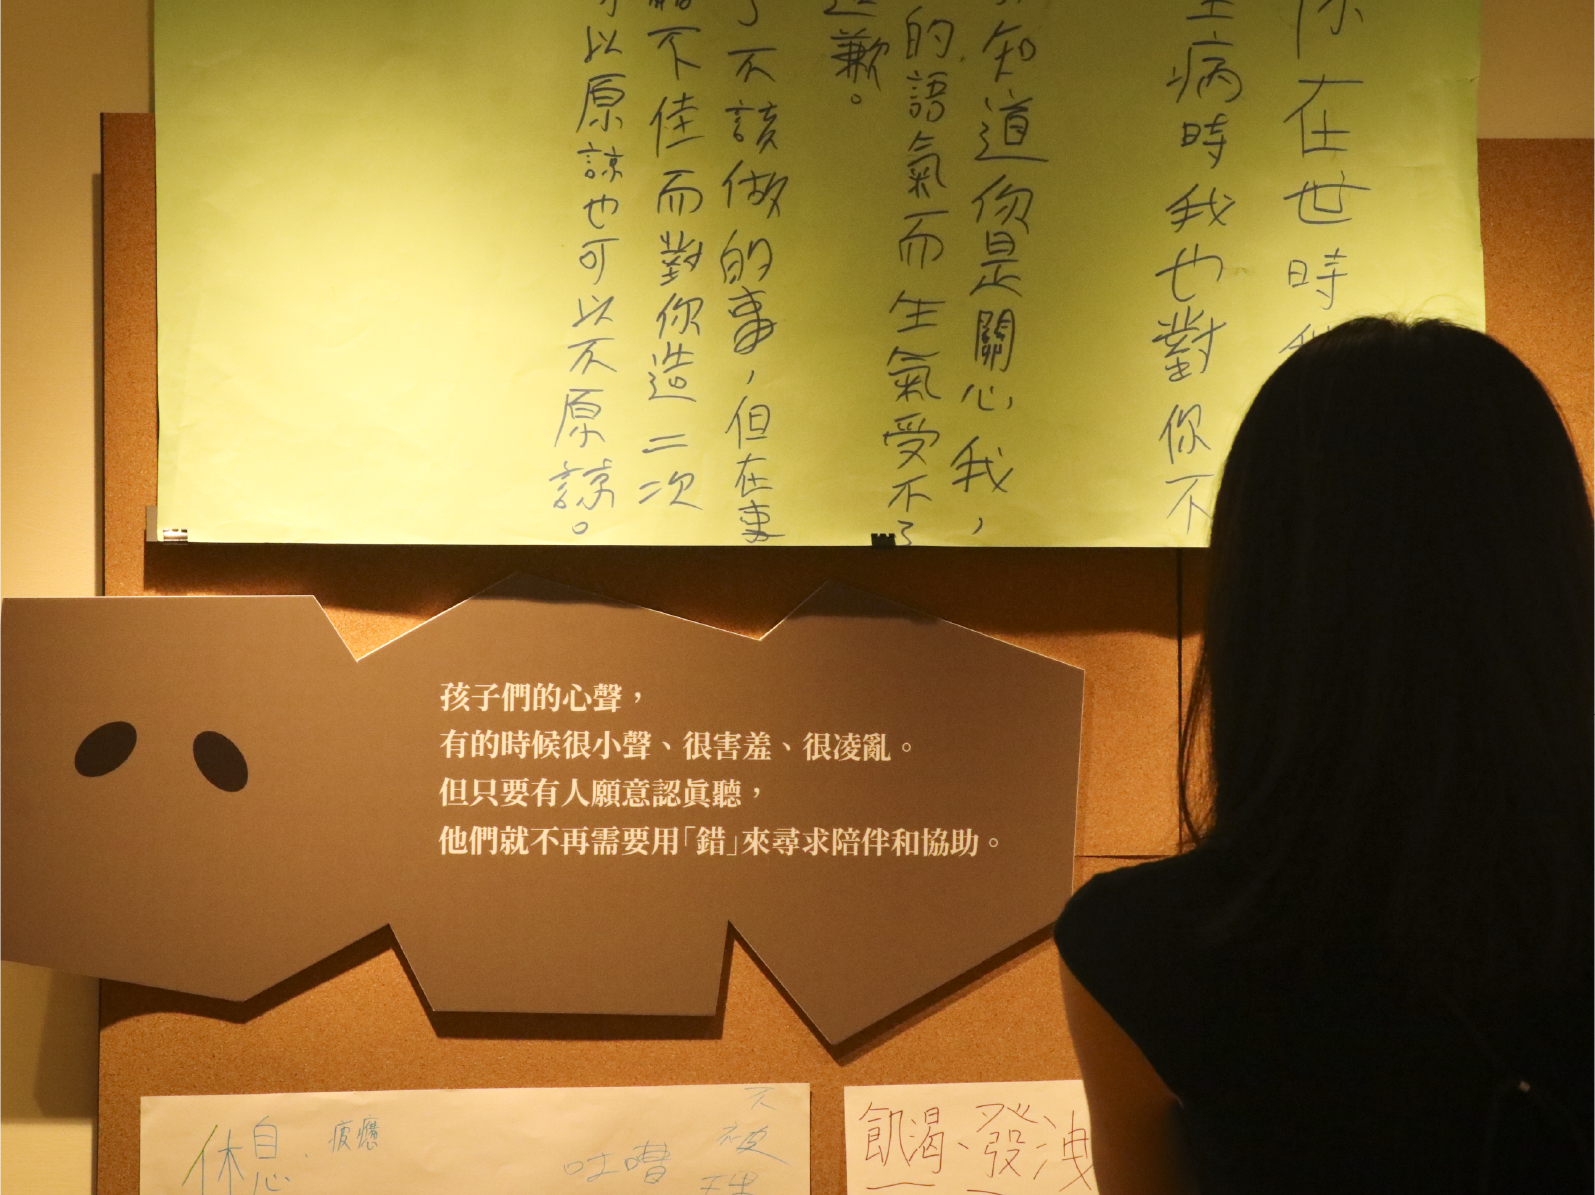 你在世時
病時我也對你不
知道你是關心我，
的語氣而生氣受不了
道歉。
了不該做的事，但在事
不佳而對你造二次
以原諒也可以不原諒。
孩子們的心聲，
有的時候很小聲、很害羞、很凌亂。
但只要有人願意認眞聽，
他們就不再需要用「錯」來尋求陪伴和協助。
休息、疲憊
吐嘈
不被
飢渴、發洩